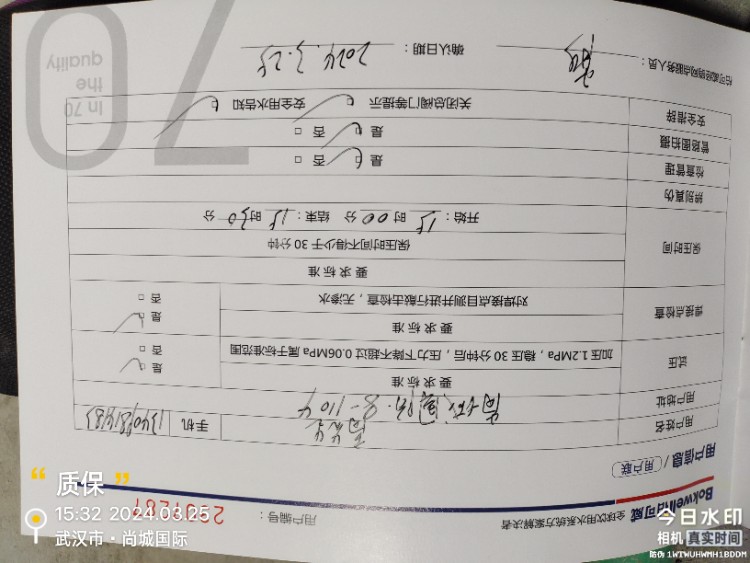 Bokwell柏可威 全球饮用水系统方案解决者
用户编号：
用户信息 / 用户联
用户姓名
手机
用户地址 尚城国际 8-1104
试压
要求标准
加压1.2MPa，稳压30分钟后，压力下降不超过0.06MPa属于标准范围
是
否
焊接点检查
要求标准
对焊接点目测并进行敲击检查，无渗水
是
否
保压时间
要求标准
保压时间不得少于30分钟
开始：15时00分 结束：15时30分
辨别真伪
检查管理
是 否
管路图拍摄
是 否
安全措辞
关闭总阀门等提示 安全用水告知
柏可威授瑞网点服务人员：
确认日期：2024.3.25
In 70
the
quality
70
质保
15:32 2024.03.25
武汉市·尚城国际
今日水印
相机 真实时间
防伪 1WTWUHWMH1BDDM